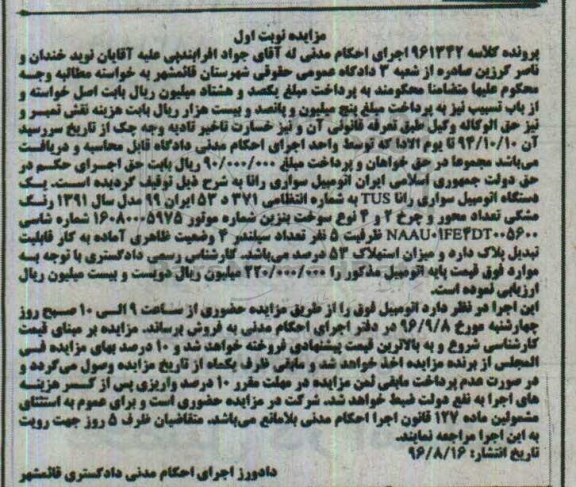 مزایده نوبت اول
پرونده کلاسه ۹۶۱۳۴۲ اجرای احکام مدنی له آقای جواد افرابندپی علیه آقایان نوید خندان و
ناصر گرزین صادره از شعبه ۳ دادگاه عمومی حقوقی شهرستان قائمشهر به خواسته مطالبه وجه
محکوم علیها متضامنا محکومند به پرداخت مبلغ یکصد و هشتاد میلیون ریال بابت اصل خواسته و
از باب تسبیب نیز به پرداخت مبلغ پنج میلیون و پانصد و بیست هزار ریال بابت هزینه نقش تمبر و
نیز حق الوکاله وکیل طبق تعرفه قانونی آن و نیز خسارت تاخیر تادیه وجه چک از تاریخ سررسید
آن ۹۴/۱۰/۱۰ تا یوم الادا که توسط واحد اجرای احکام مدنی دادگاه قابل محاسبه و دریافت
می‌باشد مجموعا در حق خواهان و پرداخت مبلغ ۹۰/۰۰۰/۰۰۰ ریال بابت حق اجرای حکم در
حق دولت جمهوری اسلامی ایران اتومبیل سواری رانا به شرح ذیل توقیف گردیده است. یک
دستگاه اتومبیل سواری رانا TUS به شماره انتظامی ۳۷۱ د ۵۳ ایران ۹۹ مدل سال ۱۳۹۱ رنگ
مشکی تعداد محور و چرخ ۲ و ۴ نوع سوخت بنزین شماره موتور ۱۶۰۸۰۰۰۵۹۷۵ شماره شاسی
NAAU۰۱FE۴DT۰۰۵۶۰۰ ظرفیت ۵ نفر تعداد سیلندر ۴ وضعیت ظاهری آماده به کار قابلیت
تبدیل پلاک دارد و میزان استهلاک ۵۳ درصد می‌باشد. کارشناس رسمی دادگستری با توجه به
موارد فوق قیمت پایه اتومبیل مذکور را ۲۲۰/۰۰۰/۰۰۰ میلیون ریال دویست و بیست میلیون ریال
ارزیابی نموده است.
این اجرا در نظر دارد اتومبیل فوق را از طریق مزایده حضوری از ساعت ۹ الی ۱۰ صبح روز
چهارشنبه مورخ ۹۶/۹/۸ در دفتر اجرای احکام مدنی به فروش برساند. مزایده بر مبنای قیمت
کارشناسی شروع و به بالاترین قیمت پیشنهادی فروخته خواهد شد و ۱۰ درصد بهای مزایده فی
المجلس از برنده مزایده اخذ خواهد شد و مابقی ظرف یکماه از تاریخ مزایده وصول می‌گردد و
در صورت عدم پرداخت مابقی ثمن مزایده در مهلت مقرر ۱۰ درصد واریزی پس از کسر هزینه
های اجرا به نفع دولت ضبط خواهد شد. شرکت در مزایده حضوری است و برای عموم به استثنای
مشمولین ماده ۱۲۷ قانون اجرا احکام مدنی بلامانع می‌باشد. متقاضیان ظرف ۵ روز جهت رویت
به این اجرا مراجعه نمایند.
تاریخ انتشار: ۹۶/۸/۱۶
دادورز اجرای احکام مدنی دادگستری قائمشهر